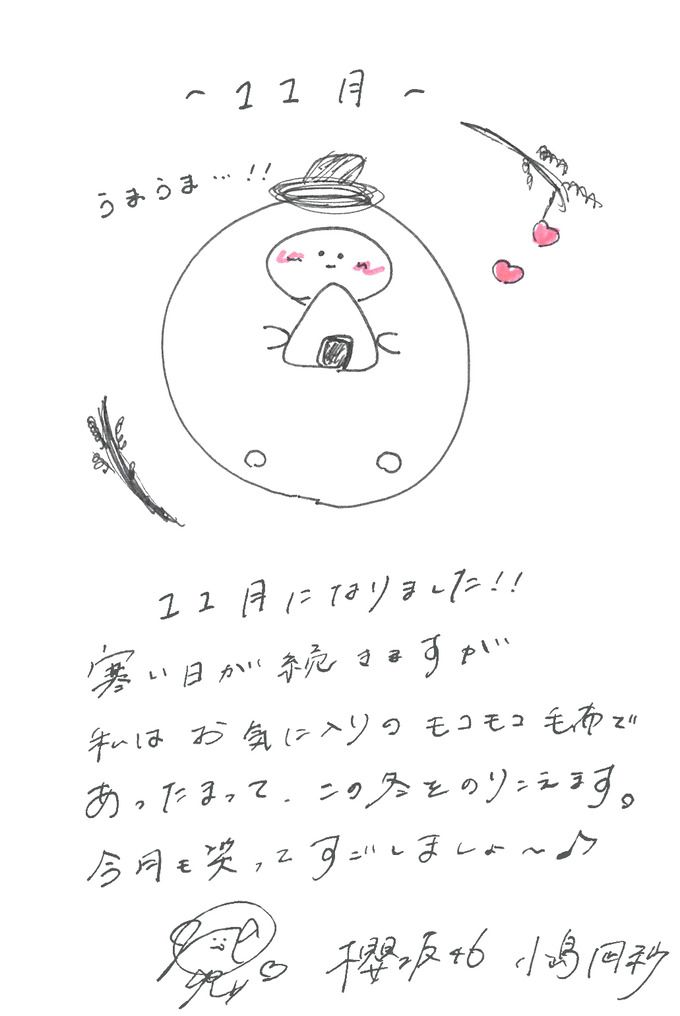 ~ 11月 ~
うまうま…!!
11月になりました!!
寒い日が続きますが
私はお気に入りのモコモコ毛布で
あったまって、この冬をのりこえます。
今月も笑ってすごしましょ〜♪
櫻坂46 小島凪紗